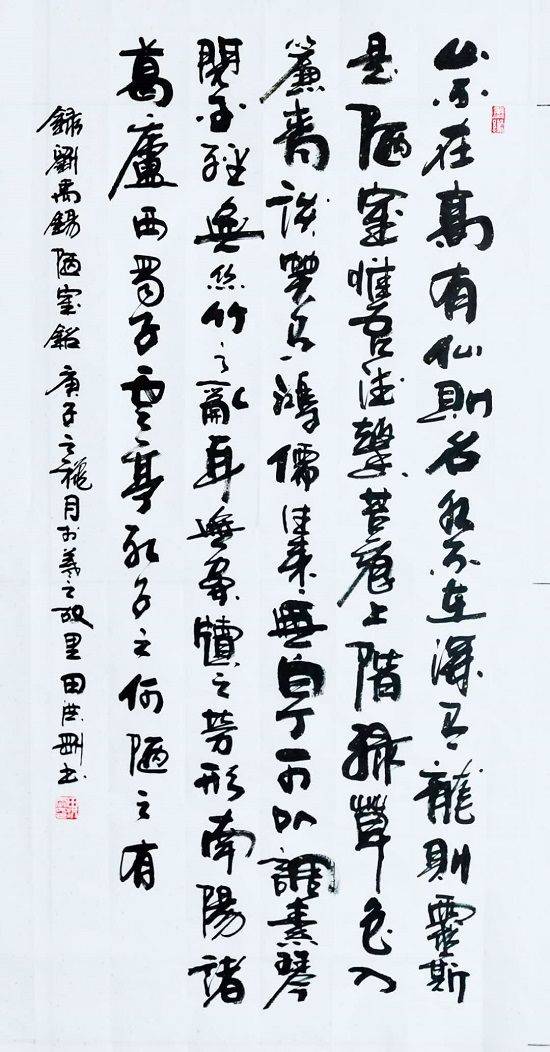 山不在高有仙則名水不在深有龍則靈斯
是陋室惟吾德馨苔痕上階綠草色入
簾青談笑有鴻儒往來無白丁可以調素琴
閱金經無絲竹之亂耳無案牘之勞形南陽諸
葛廬西蜀子雲亭孔子云何陋之有
錄劉禹錫陋室銘庚子之穐月於羲之故里田洪書